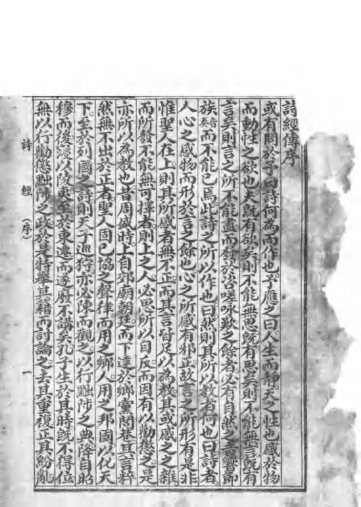 詩經傳序
或有問於予曰詩何為而作也予應之曰人生而靜天之性也感於物
而動性之欲也夫既有欲矣則不能無思既有思矣則不能無言既有
言矣則言之所不能盡而發於咨嗟咏歎之餘者必有自然之音響節
族而不能已焉此詩之所以作也曰然則其所以教者何也曰詩者
人心之感物而形於言之餘也心之所感有邪正故言之所形有是非
惟聖人在上則其所感者無不正而其言皆足以為教其或感之之雜
而所發不能無可擇者則上之人必思所以自反而因有以勸懲之是
亦所以為教也昔周盛時上自郊廟朝廷而下達於鄉黨閭巷其言粹
然無不出於正者聖人固已協之聲律而用之鄉人用之邦國以化天
下至於列國之詩則天子巡狩亦必陳而觀之以行黜陟之典降自昭
穆而後寖以陵夷至於東遷而遂廢不講矣孔子生於其時既不得位
無以行勸懲黜陟之政於是特舉其籍而討論之去其重復正其紛亂
詩經(序) 一